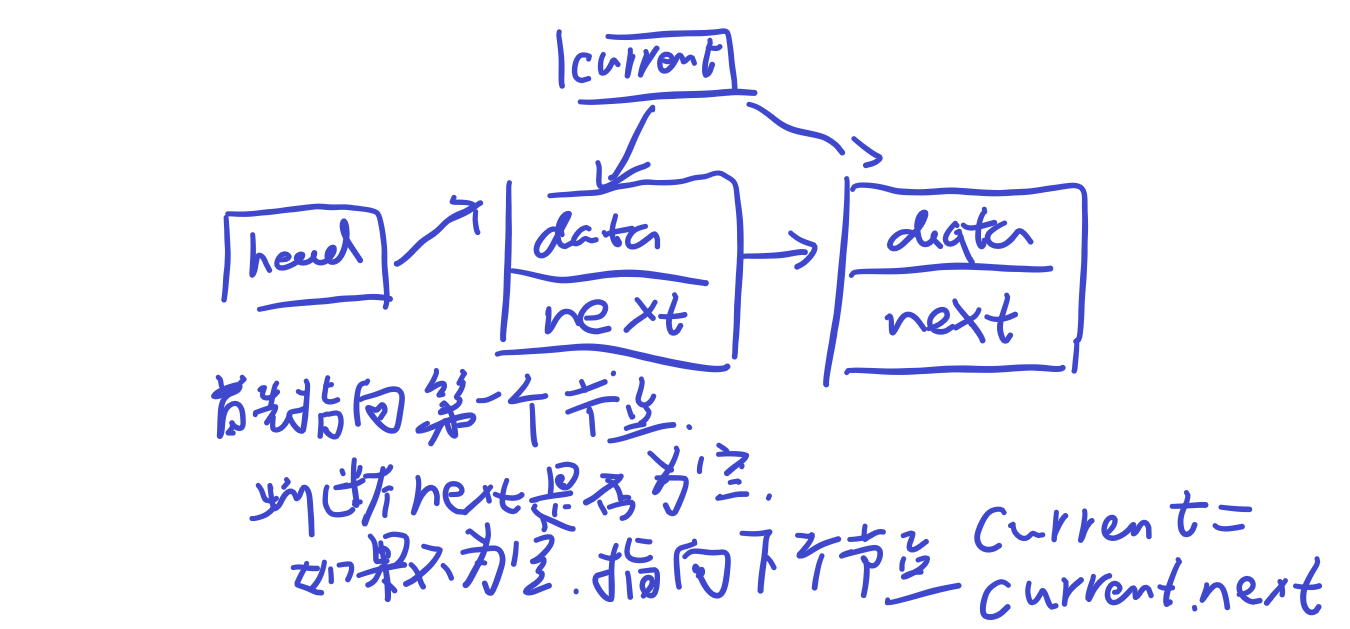 current
head
data
data
next
next
首先指向第一个节点.
判断next是否为空.
如果不为空.指向下个节点
current=
current.next